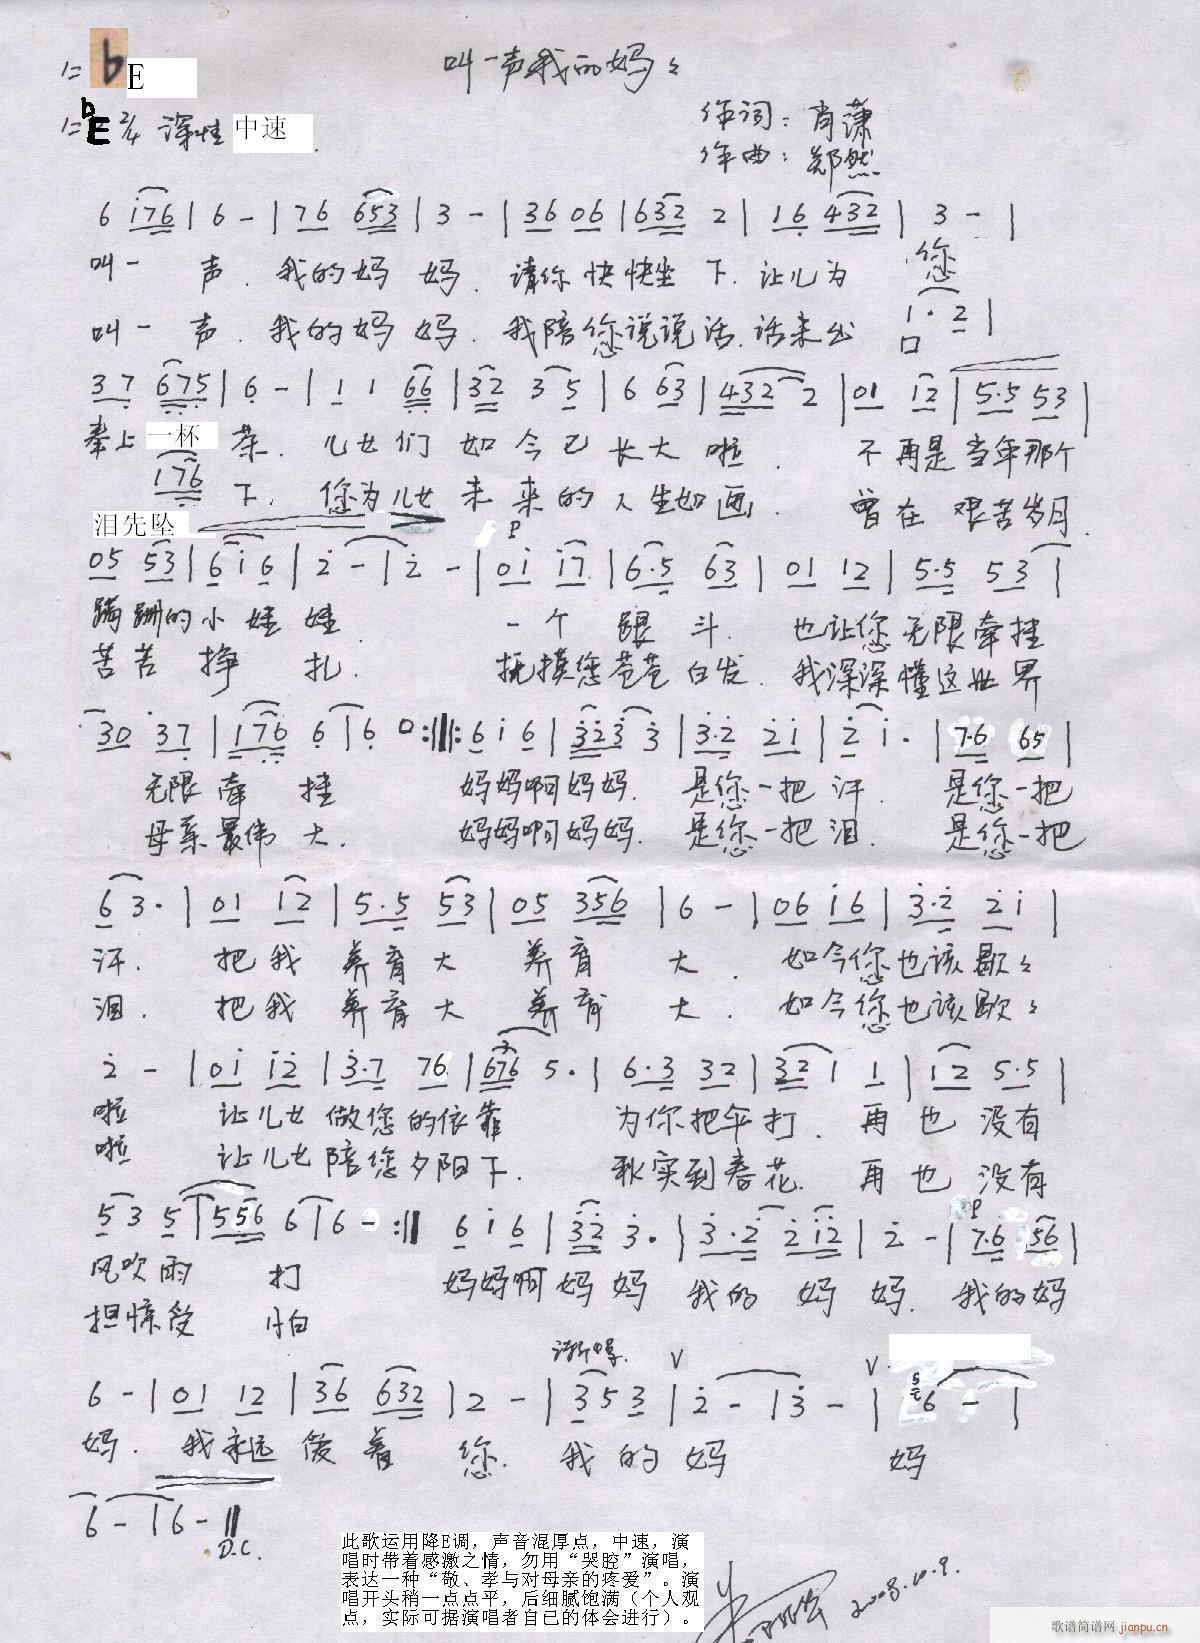 1=bE
叫一声我的妈妈
1=bE 2/4 深情 中速
作词：肖潇
作曲：郑然
6 176 | 6 - | 76 653 | 3 - | 36 06 | 632 2 | 16 432 | 3 - |
叫一 声. 我的妈 妈. 请你 快快坐 下. 让儿为 您
叫一 声. 我的妈妈. 我陪您说说话. 话未出 口
1· 2 |
37 675 | 6 - | 1 1 66 | 32 3 5 | 6 63 | 432 2 | 01 12 | 5·5 53 |
奉上 一杯 茶. 儿女们 如今已 长大 啦. 不再是当年那个
176
泪先坠 下. 您为儿女 未来的人生如画. 曾在 艰苦岁月.
P
05 53 | 6 i 6 | 2 - | 2 - | 0i i7 | 6·5 63 | 01 12 | 5·5 53 |
蹒跚的小娃娃. 一个 跟斗. 也让您无限牵挂
苦苦挣扎. 抚摸您苍苍白发. 我深深懂这世界
30 37 | 176 6 | 6 0 :‖: 6 i 6 | 323 3 | 3·2 2i | 2 i· | 7·6 65 |
无限牵挂 妈妈啊妈妈. 是您一把汗. 是您一把
母亲最伟大. 妈妈啊妈妈. 是您一把泪. 是您一把
6 3· | 01 12 | 5·5 53 | 05 356 | 6 - | 06 i6 | 3·2 2i |
汗. 把我 养育大 养育 大. 如今您也该歇歇
泪. 把我 养育大 养育 大. 如今您也该歇歇
2 - | 0i i2 | 3·7 76 | 676 5· | 6·3 32 | 32 1 1 | 12 5·5 |
啦 让儿女做您的依靠 为你把伞打. 再也没有
啦 让儿女陪您夕阳下. 秋实到春花. 再也没有
P
53 5 | 556 6 | 6 - :‖ 6 i 6 | 32 3· | 3·2 2i2 | 2 - | 7·6 56 |
风吹雨 打 妈妈啊妈妈 我的妈妈. 我的妈
担惊受 怕
渐慢. V V
6 - | 01 12 | 36 632 | 2 - | 3 5 3 | 2 - | 3 - | 6 - |
妈. 我永远爱着 您. 我的妈 妈
6 - | 6 - ‖
D.C.
此歌运用降E调，声音混厚点，中速，演
唱时带着感激之情，勿用“哭腔”演唱，
表达一种“敬、孝与对母亲的疼爱”。演
唱开头稍一点点平，后细腻饱满（个人观
点，实际可据演唱者自己的体会进行）。
2008.10.9.
歌谱简谱网 jianpu.cn